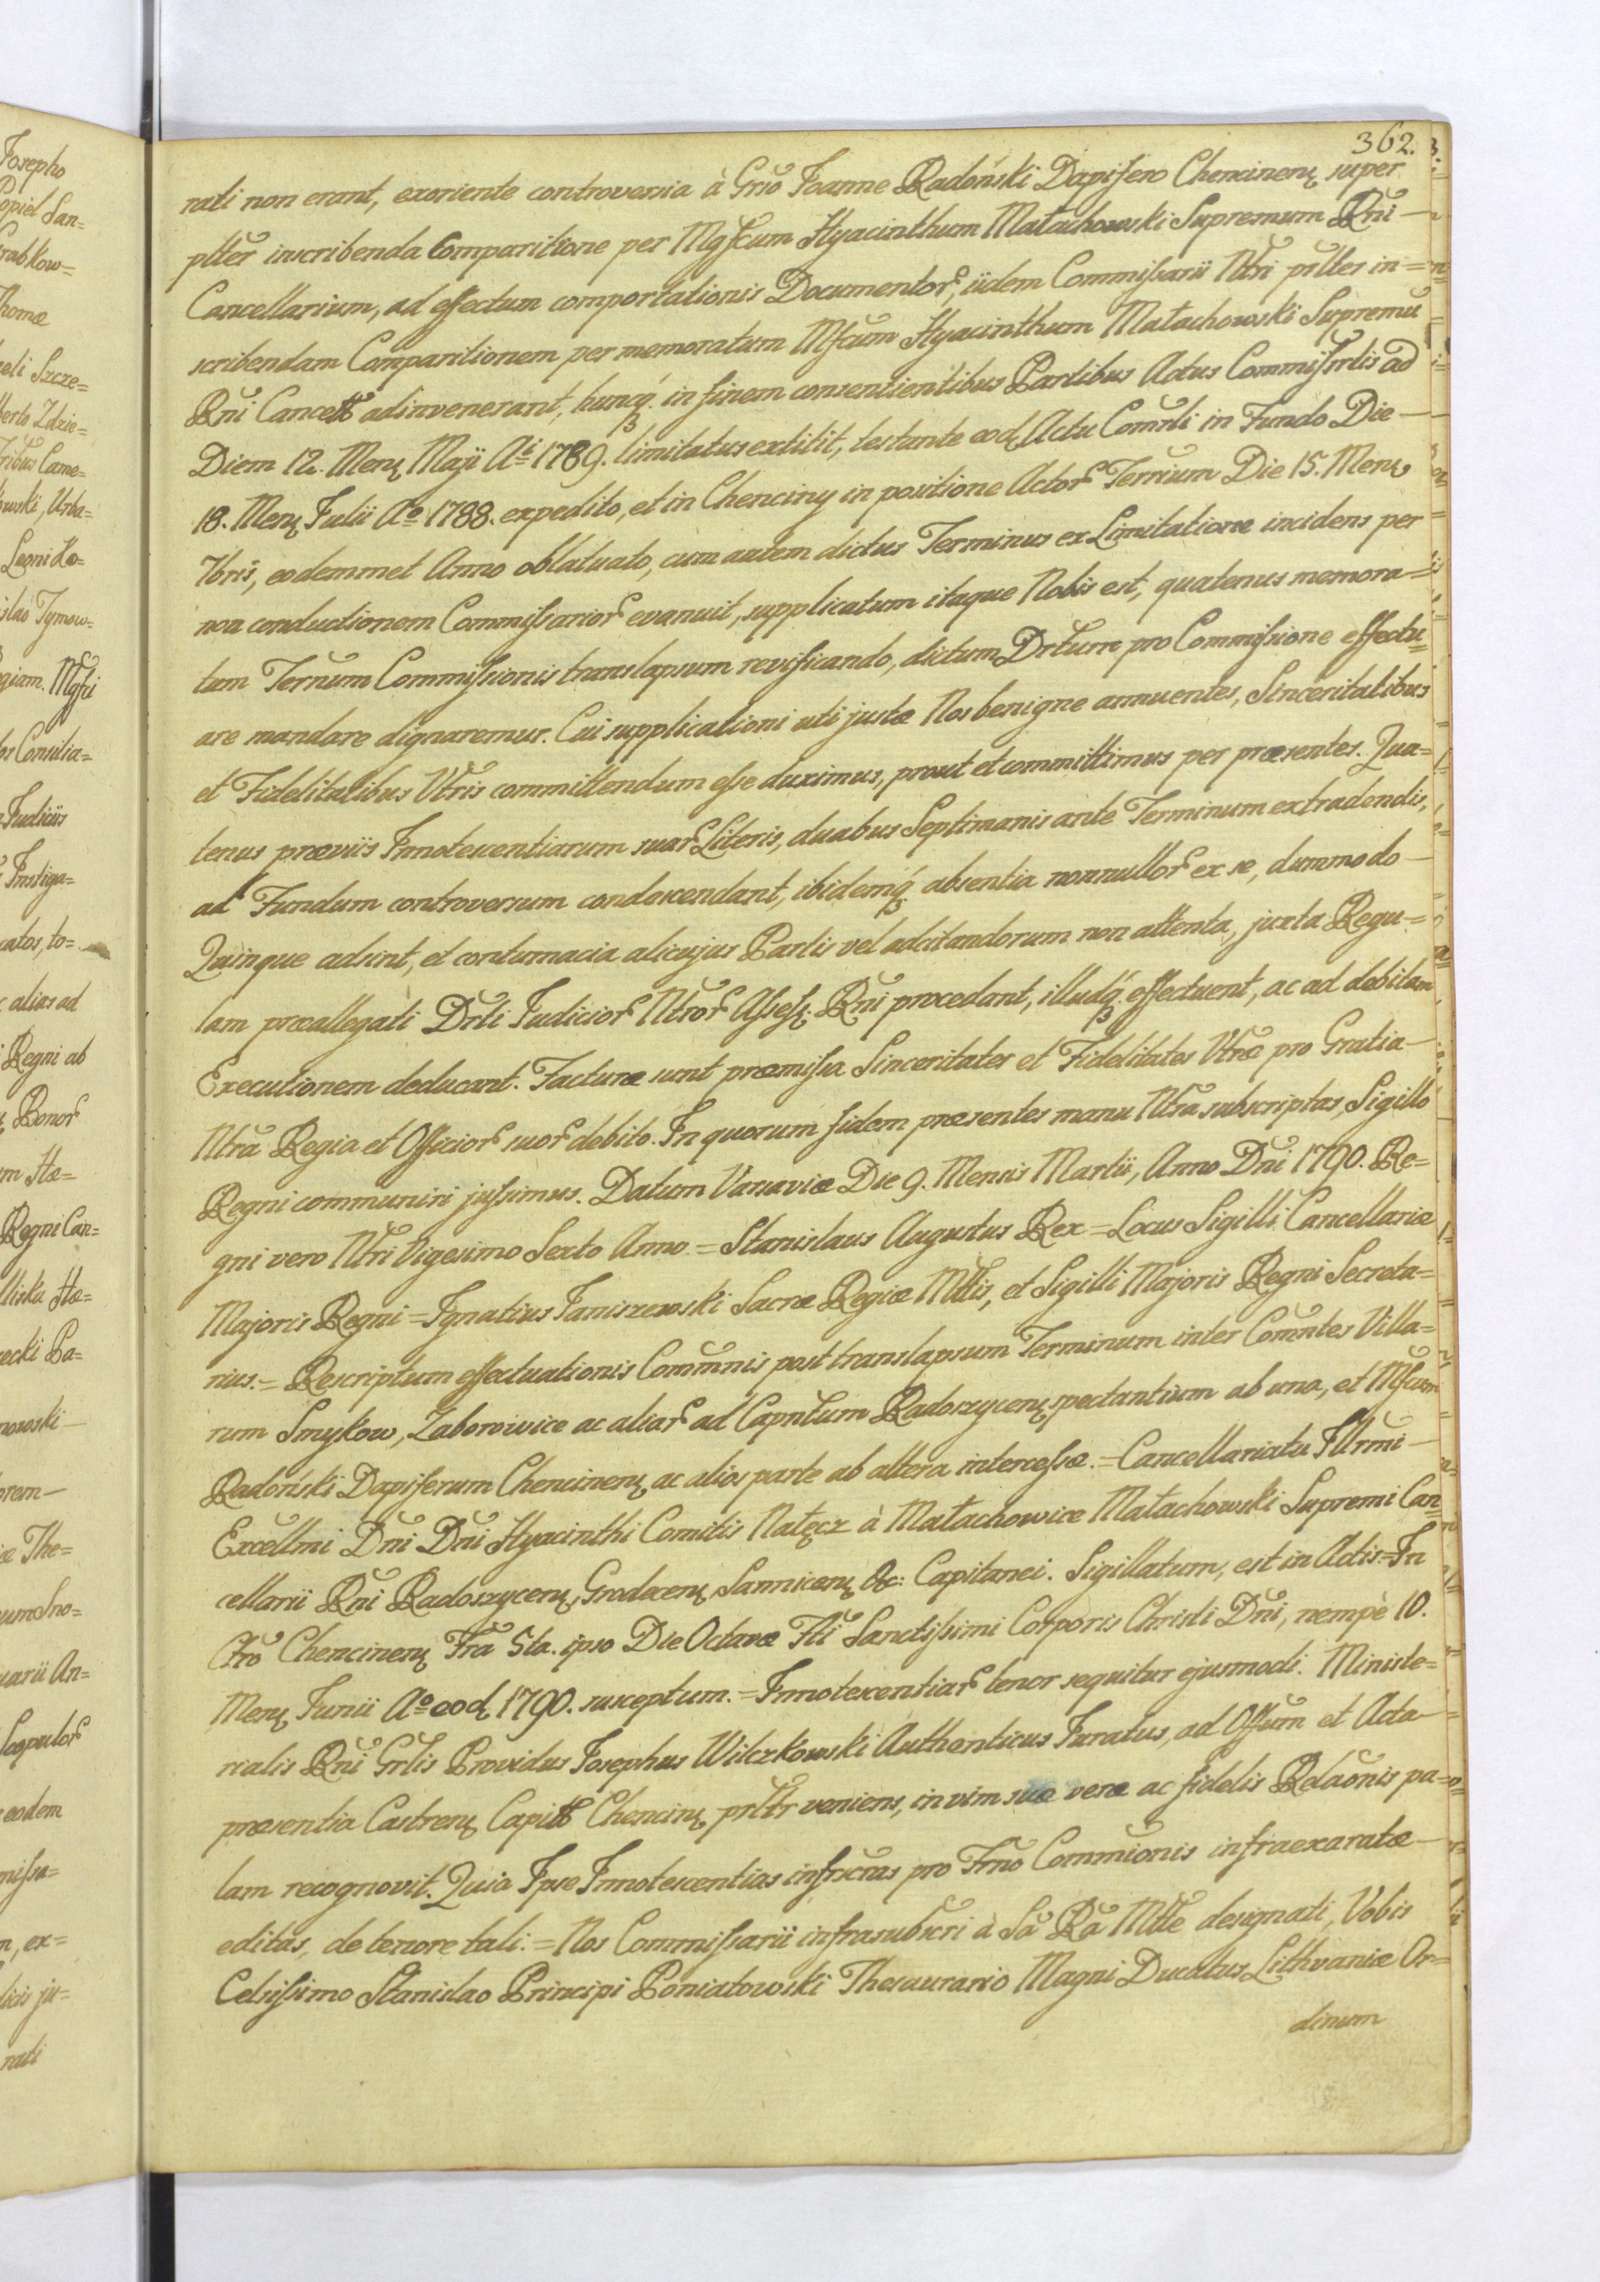 362.
rati non erant, exoriente controversia à Grŏo Joanne Radoński Dapifero Chencinenş super
plter inscribenda Comparitione per Mgfcum Hyacinthum Małachowski Supremum Rňi
Cancellarium, ad effectum comportationis Documentor̃, iidem Commissarii Ntri prltes in=
scribendam Comparitionem per memoratum Mfcum Hyacinthum Małachowski Supremŭ
Rňi Cancell adinvenerant, huncq́ in finem consentientibus Partibus Actus Commissrlis ad
Diem 12. Menş Maji Ai 1789. limitatus extitit, testante eod Actu Comrli in Fundo Die
18. Menş Julii Ao 1788. expedito, et in Chenciny in positione Actor̃ Terrium Die 15. Menş
7bris, eodemmet Anno oblatuato, cum autem dictus Terminus ex Limitatione incidens per
non conductionem Commissarior̃ evanuit, supplicatum itaque Nobis est, quatenus memora=
tum Ternum Commissionis translapsum revificando, dictum Drtum pro Commissione effectu=
are mandare dignaremur. Cui supplicationi uti justæ Nos benigne annuentes, Sinceritatibus
et Fidelitatibus Vtris committendum esse duximus, prout et committimus per præsentes. Qua=
tenus præviis Innotescentiarum suar̃ Literis, duabus Septimanis ante Terminum extradendis,
ad Fundum controversum condescendant, ibidemq́ absentia nonnullor̃ ex se, dummodo
Quinque adsint, et contumacia alicujus Partis vel adcitandorum non attenta, juxta Regu=
lam præallegati Drti Judicior̃ Ntror̃ Assesş Rňi procedant, illudq́ effectuent, ac ad debitam
Executionem deducant. Facturæ sunt præmissa Sinceritates et Fidelitates Vtræ pro Gratia
Ntra Regia et Officior̃ suor̃ debito. In quorum fidem præsentes manu Ntra subscriptas, Sigillo
Regni communiri jussimus. Datum Varsaviæ Die 9. Mensis Martii, Anno Dňi 1790. Re=
gni vero Ntri Vigesimo Sexto Anno = Stanislaus Augustus Rex = Locus Sigilli Cancellariæ
Majoris Regni = Ignatius Janiszewski Sacræ Regiæ Mttis, et Sigilli Majoris Regni Secreta=
rius. = Rescriptum effectuationis Commnis post translapsum Terminum inter Comntes Villa=
rum Smykow, Zaborowice ac aliar̃ ad Capntum Radoszycenş spectantium ab una, et Mfcum
Radoński Dapiferum Chencinenş ac alios parte ab altera intercessæ. = Cancellariatu Illrmi
Excellmi Dňi Dňi Hyacinthi Comitis Nałęcz à Małachowice Małachowski Supremi Can=
cellarii Rňi Radoszycenş, Grodecenş Sannicenş &c: Capitanei. Sigillatum, est in Actis = In
Ctro Chencinenş Fra 5ta. ipso Die Octavæ Fti Sanctissimi Corporis Christi Dňi, nempè 10.
Menş Junii Ao eod 1790. susceptum. = Innotescentiar̃ tenor sequitur ejusmodi. Ministe=
rialis Rňi Grlis Providus Josephus Wilczkowski Authenticus Juratus, ad Offum et Acta
præsentia Castrenş Capitt Chencinş prltr veniens, in vim suæ veræ ac fidelis Relaonis pa=
lam recognovit. Quia Ipse Innotescentias infrscras pro Trno Commionis infraexaratæ
editas, de tenore tali: = Nos Commissarii infrasubscri à Sa Ra Mtte designati, Vobis
Celsissimo Stanislao Principi Poniatowski Thesaurario Magni Ducatus Lithvaniæ Or=
dinum
Josepho
Popiel San=
rabkow=
Thomæ
eli Szcze=
berto Zdzie=
Came=
owski, Urba=
Leoni Ko=
slao Tymow=
giam. Mgfci
Consilia=
Judiciis
Instiga=
catos, to=
alias ad
Regni ab
Bonor̃
Hæ=
Regni Can=
Hæ=
ecki Pa=
nowski
orem
The=
uarii An=
Scopulor̃
eodem
missa=
n, ex=
liciis ju=
rati